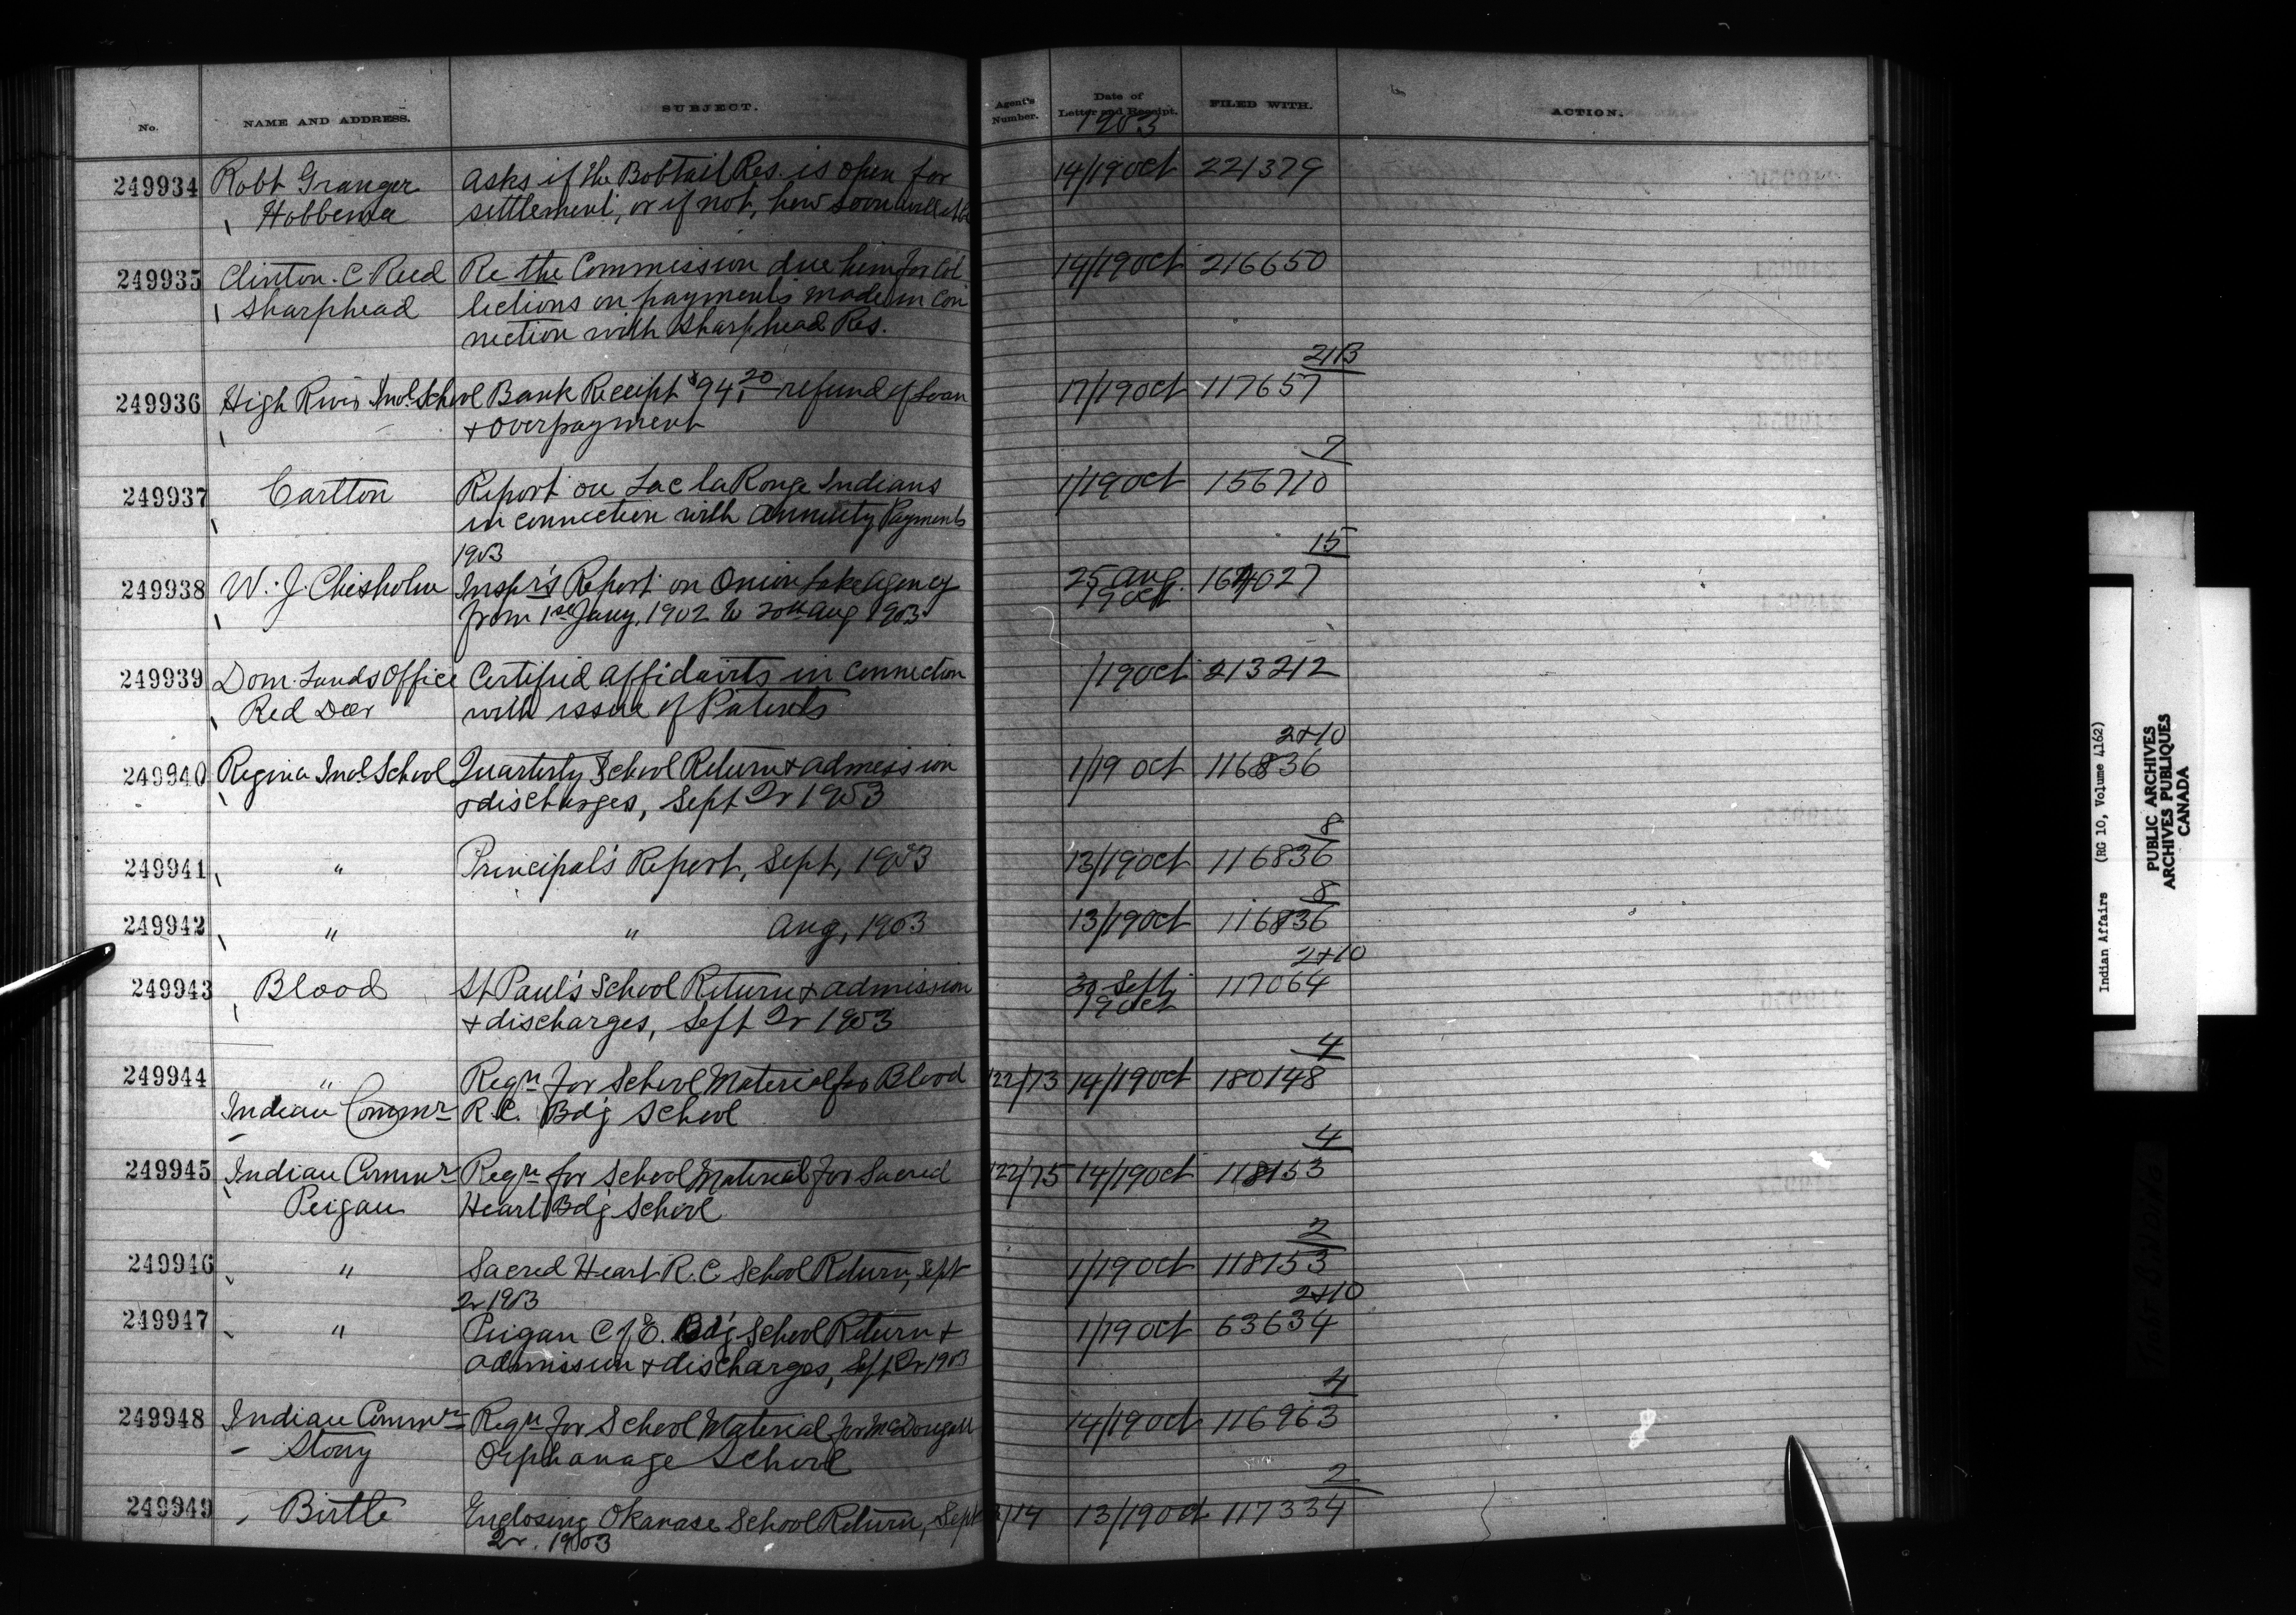 No. NAME AND ADDRESS. SUBJECT. Agent's Number. Date of Letter and Receipt. FILED WITH. ACTION.
1903
249934 Robt Granger Asks if the Bobtail Res. is open for 14/19 Oct 221379
Hobbema settlement, or if not, how soon will it be
249935 Clinton. C Reed Re the Commission due him for Col 14/19 Oct 216650
Sharphead lections on payments made in con
nection with Sharphead Res.
21B
249936 High River Ind. School Bank Receipt $94.20 refund of Loan 17/19 Oct 117657
+ overpayment
7
249937 Carlton Report on Lac la Ronge Indians 1/19 Oct 156710
in connection with Annuity Payments
1903
15
249938 W. J. Chisholm Inspr's Report on Onion Lake Agency 25 Aug. 164027
from 1st Jany, 1902 to 20th Aug 1903 19 Oct
249939 Dom. Lands Office Certified affidavits in connection /19 Oct 213212
Red Deer with issue of Patents
2+10
249940 Regina Ind School Quarterly School Return + admission 1/19 Oct 116836
+ discharges, Sept Qr 1903
8
249941 " Principal's Report, Sept, 1903 13/19 Oct 116836
8
249942 " " Aug, 1903 13/19 Oct 116836
2+10
249943 Blood St Paul's School Return + admission 30 Sept 117064
+ discharges, Sept Qr 1903 19 Oct
4
249944 " Reqn for School Material for Blood 122/73 14/19 Oct 180148
Indian Commr R.C. Bdg School
4
249945 Indian Commr Reqn for School Material for Sacred 122/75 14/19 Oct 118153
Peigan Heart Bdg School
2
249946 " Sacred Heart R.C School Return, Sept 1/19 Oct 118153
Qr 1903
2+10
249947 " Peigan C of E. Bdg School Return + 1/19 Oct 63634
admission + discharges, Sept Qr 1903
4
249948 Indian Commr Reqn for School Material for McDougall 14/19 Oct 116963
Stony Orphanage School
2
249949 Birtle Enclosing Okanase School Return, Sept /14 13/19 Oct 117334
Qr. 1903
Indian Affairs (RG 10, Volume 4162)
PUBLIC ARCHIVES
ARCHIVES PUBLIQUES
CANADA